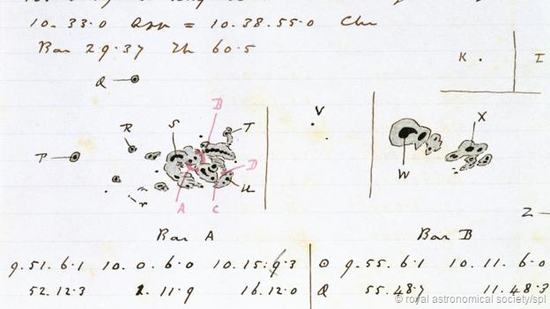 10.33.0 App = 10.38.55.0 Clr
Bar 29.37 Th 60.5
K I
Q
V
X
B
S T
R
P
D
W
r A C U
2
Bar A Bar B
9.51.6.1 10.0.6.0 10.15.9.3 ⊙ 9.55.6.1 10.11.6.0
52.12.3 11.9 16.12.0 Q 55.48.7 11.48.3
© royal astronomical society/spl